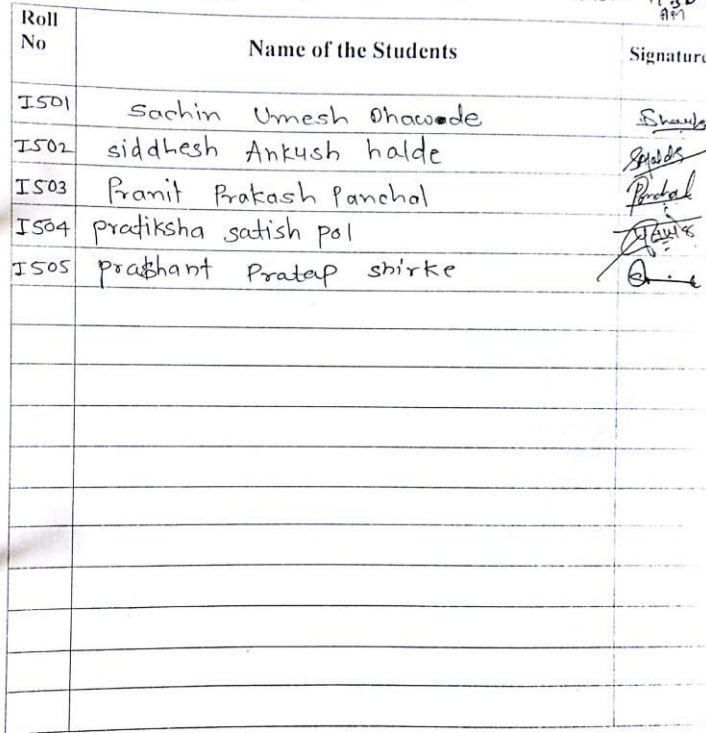 AM
Roll No Name of the Students Signature
I501 Sachin Umesh Dhawade
I502 siddhesh Ankush halde
I503 Pranit Prakash Panchal Panchal
I504 pratiksha satish pol
I505 prashant Pratap shirke